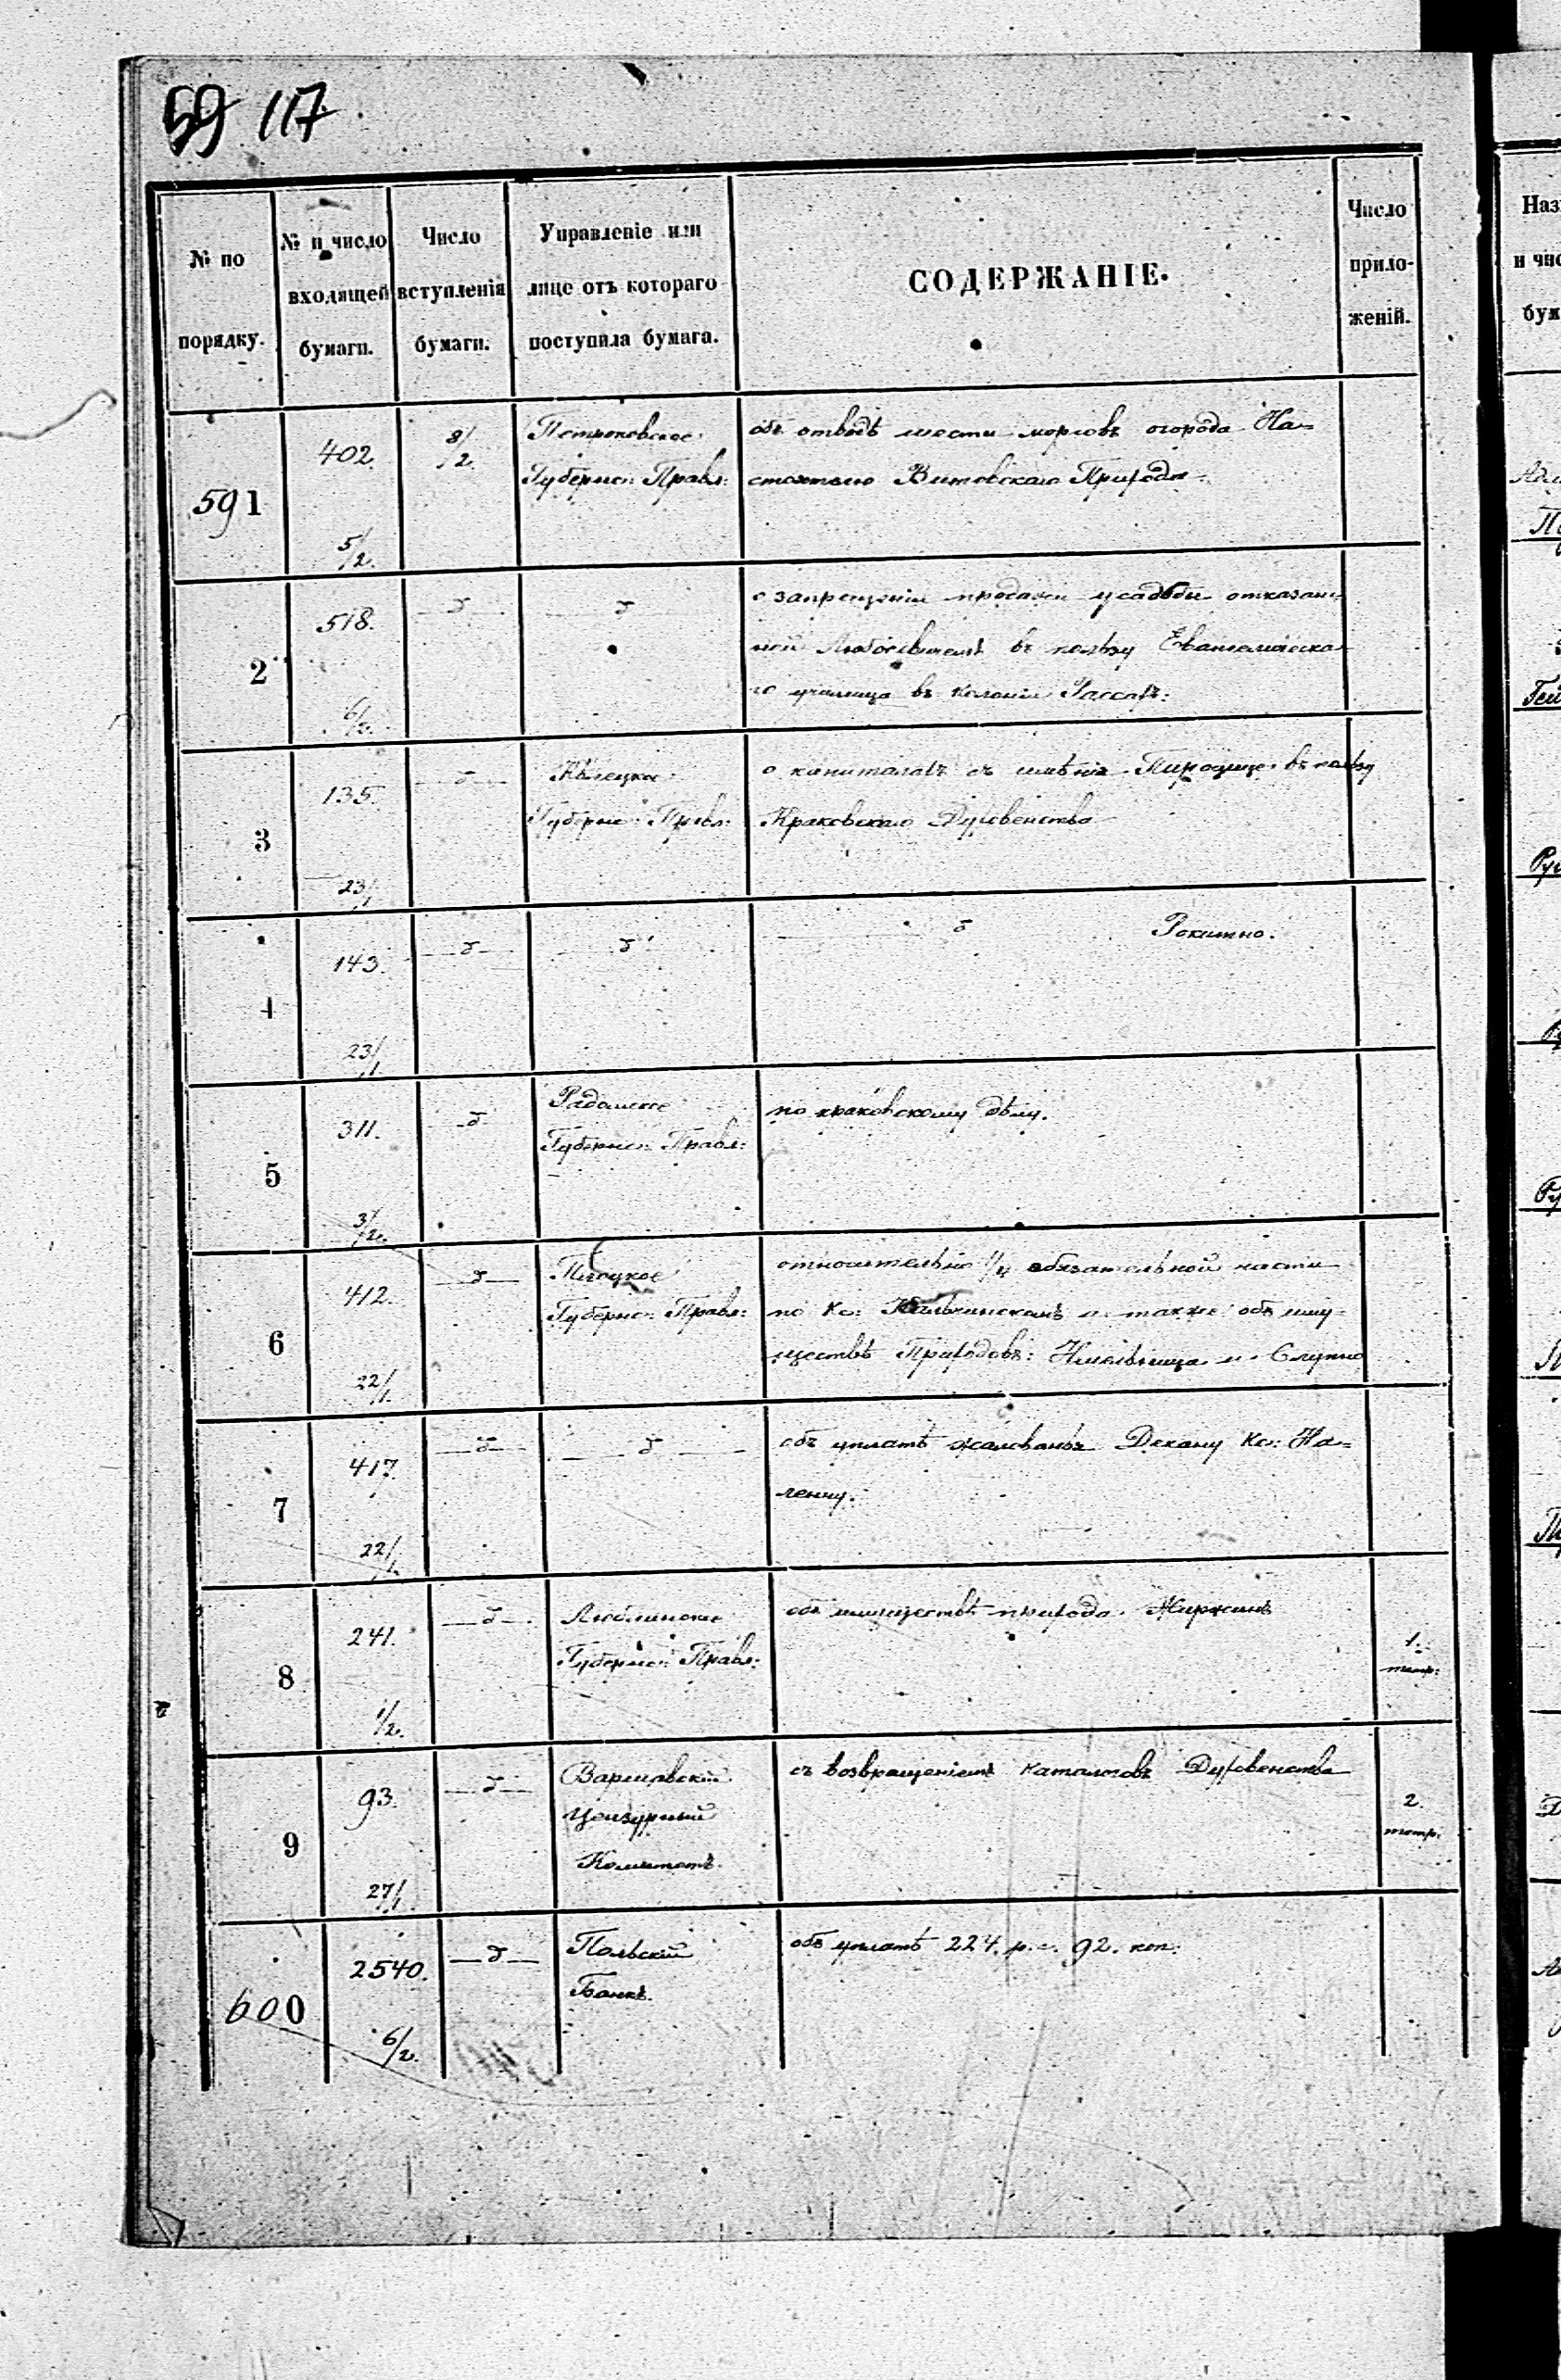 59 117
№ по порядку.
№ и число входящей бумаги.
Число вступленія бумаги.
Управленіе или лице отъ котораго поступила бумага.
СОДЕРЖАНІЕ.
Число приложеній.
591
402.
5/2.
8/2.
Петроковское
Губернс: Правл:
объ отводѣ шести морговъ огорода На=
стоятелю Витовскаго Прихода
2
518.
6/2.
о запрещеніи продажи усадьбы отказан=
ной въ пользу Евангелическа=
го училища въ колоніи
3
135.
23/1
Кѣлецкое
Губернс: Правл:
о капиталахъ съ имѣнія въ пользу
Краковскаго Духовенства
4
143.
23/1
Рокитно.
5
311.
3/2.
Радомское
Губернс: Правл:
по краковскому дѣлу.
6
412.
22/1.
Плоцкое
Губернс: Правл:
относительно 1/4 обязательной части
по Кс: а также объ иму=
ществѣ Приходовъ: и Слупно
7
417.
22/1.
объ уплатѣ жалованья Декану Кс: На=
ленцу.
8
241.
1/2.
Люблинское
Губернс: Правл:
объ имуществѣ прихода
1.
тетр:
9
93.
27/1.
Варшавскій
Цензурный
Комитетъ.
съ возвращеніемъ каталоговъ Духовенства
2.
тетр:
600
2540.
6/2.
Польскій
Банкъ.
объ уплатѣ 224. р. с. 92. коп.